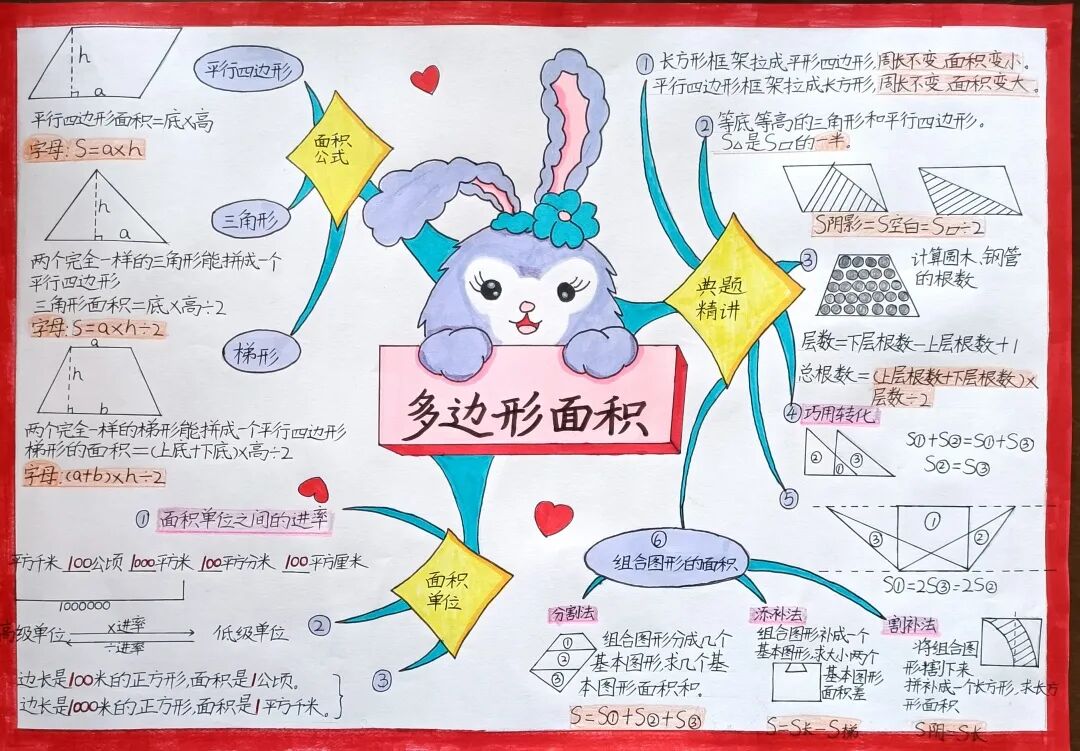 多边形面积
面积
公式
平行四边形
h
a
平行四边形面积=底×高
字母:S=a×h
三角形
h
a
两个完全一样的三角形能拼成一个
平行四边形
三角形面积=底×高÷2
字母:S=a×h÷2
梯形
a
h
b
两个完全一样的梯形能拼成一个平行四边形
梯形的面积=(上底+下底)×高÷2
字母:(a+b)×h÷2
面积
单位
① 面积单位之间的进率
平方千米 100公顷 1000平方米 100平方分米 100平方厘米
1000000
②
高级单位 ×进率 低级单位
÷进率
③
边长是100米的正方形,面积是1公顷。
边长是1000米的正方形,面积是1平方千米。
典题
精讲
① 长方形框架拉成平形四边形,周长不变,面积变小。
平行四边形框架拉成长方形,周长不变,面积变大。
② 等底,等高的三角形和平行四边形。
S△是S▱的一半。
S阴影=S空白=S▱÷2
③ 计算圆木、钢管
的根数
层数=下层根数-上层根数+1
总根数=(上层根数+下层根数)×
层数÷2
④ 巧用转化
② ① ③
S①+S②=S①+S③
S②=S③
⑤
① ② ③
S①=2S③=2S②
⑥
组合图形的面积
分割法
① ② ③
组合图形分成几个
基本图形,求几个基
本图形面积和。
S=S①+S②+S③
添补法
组合图形补成一个
基本图形,求大小两个
基本图形
面积差
S=S长-S梯
割补法
将组合图
形割下来
拼补成一个长方形,求长方
形面积
S阴=S长